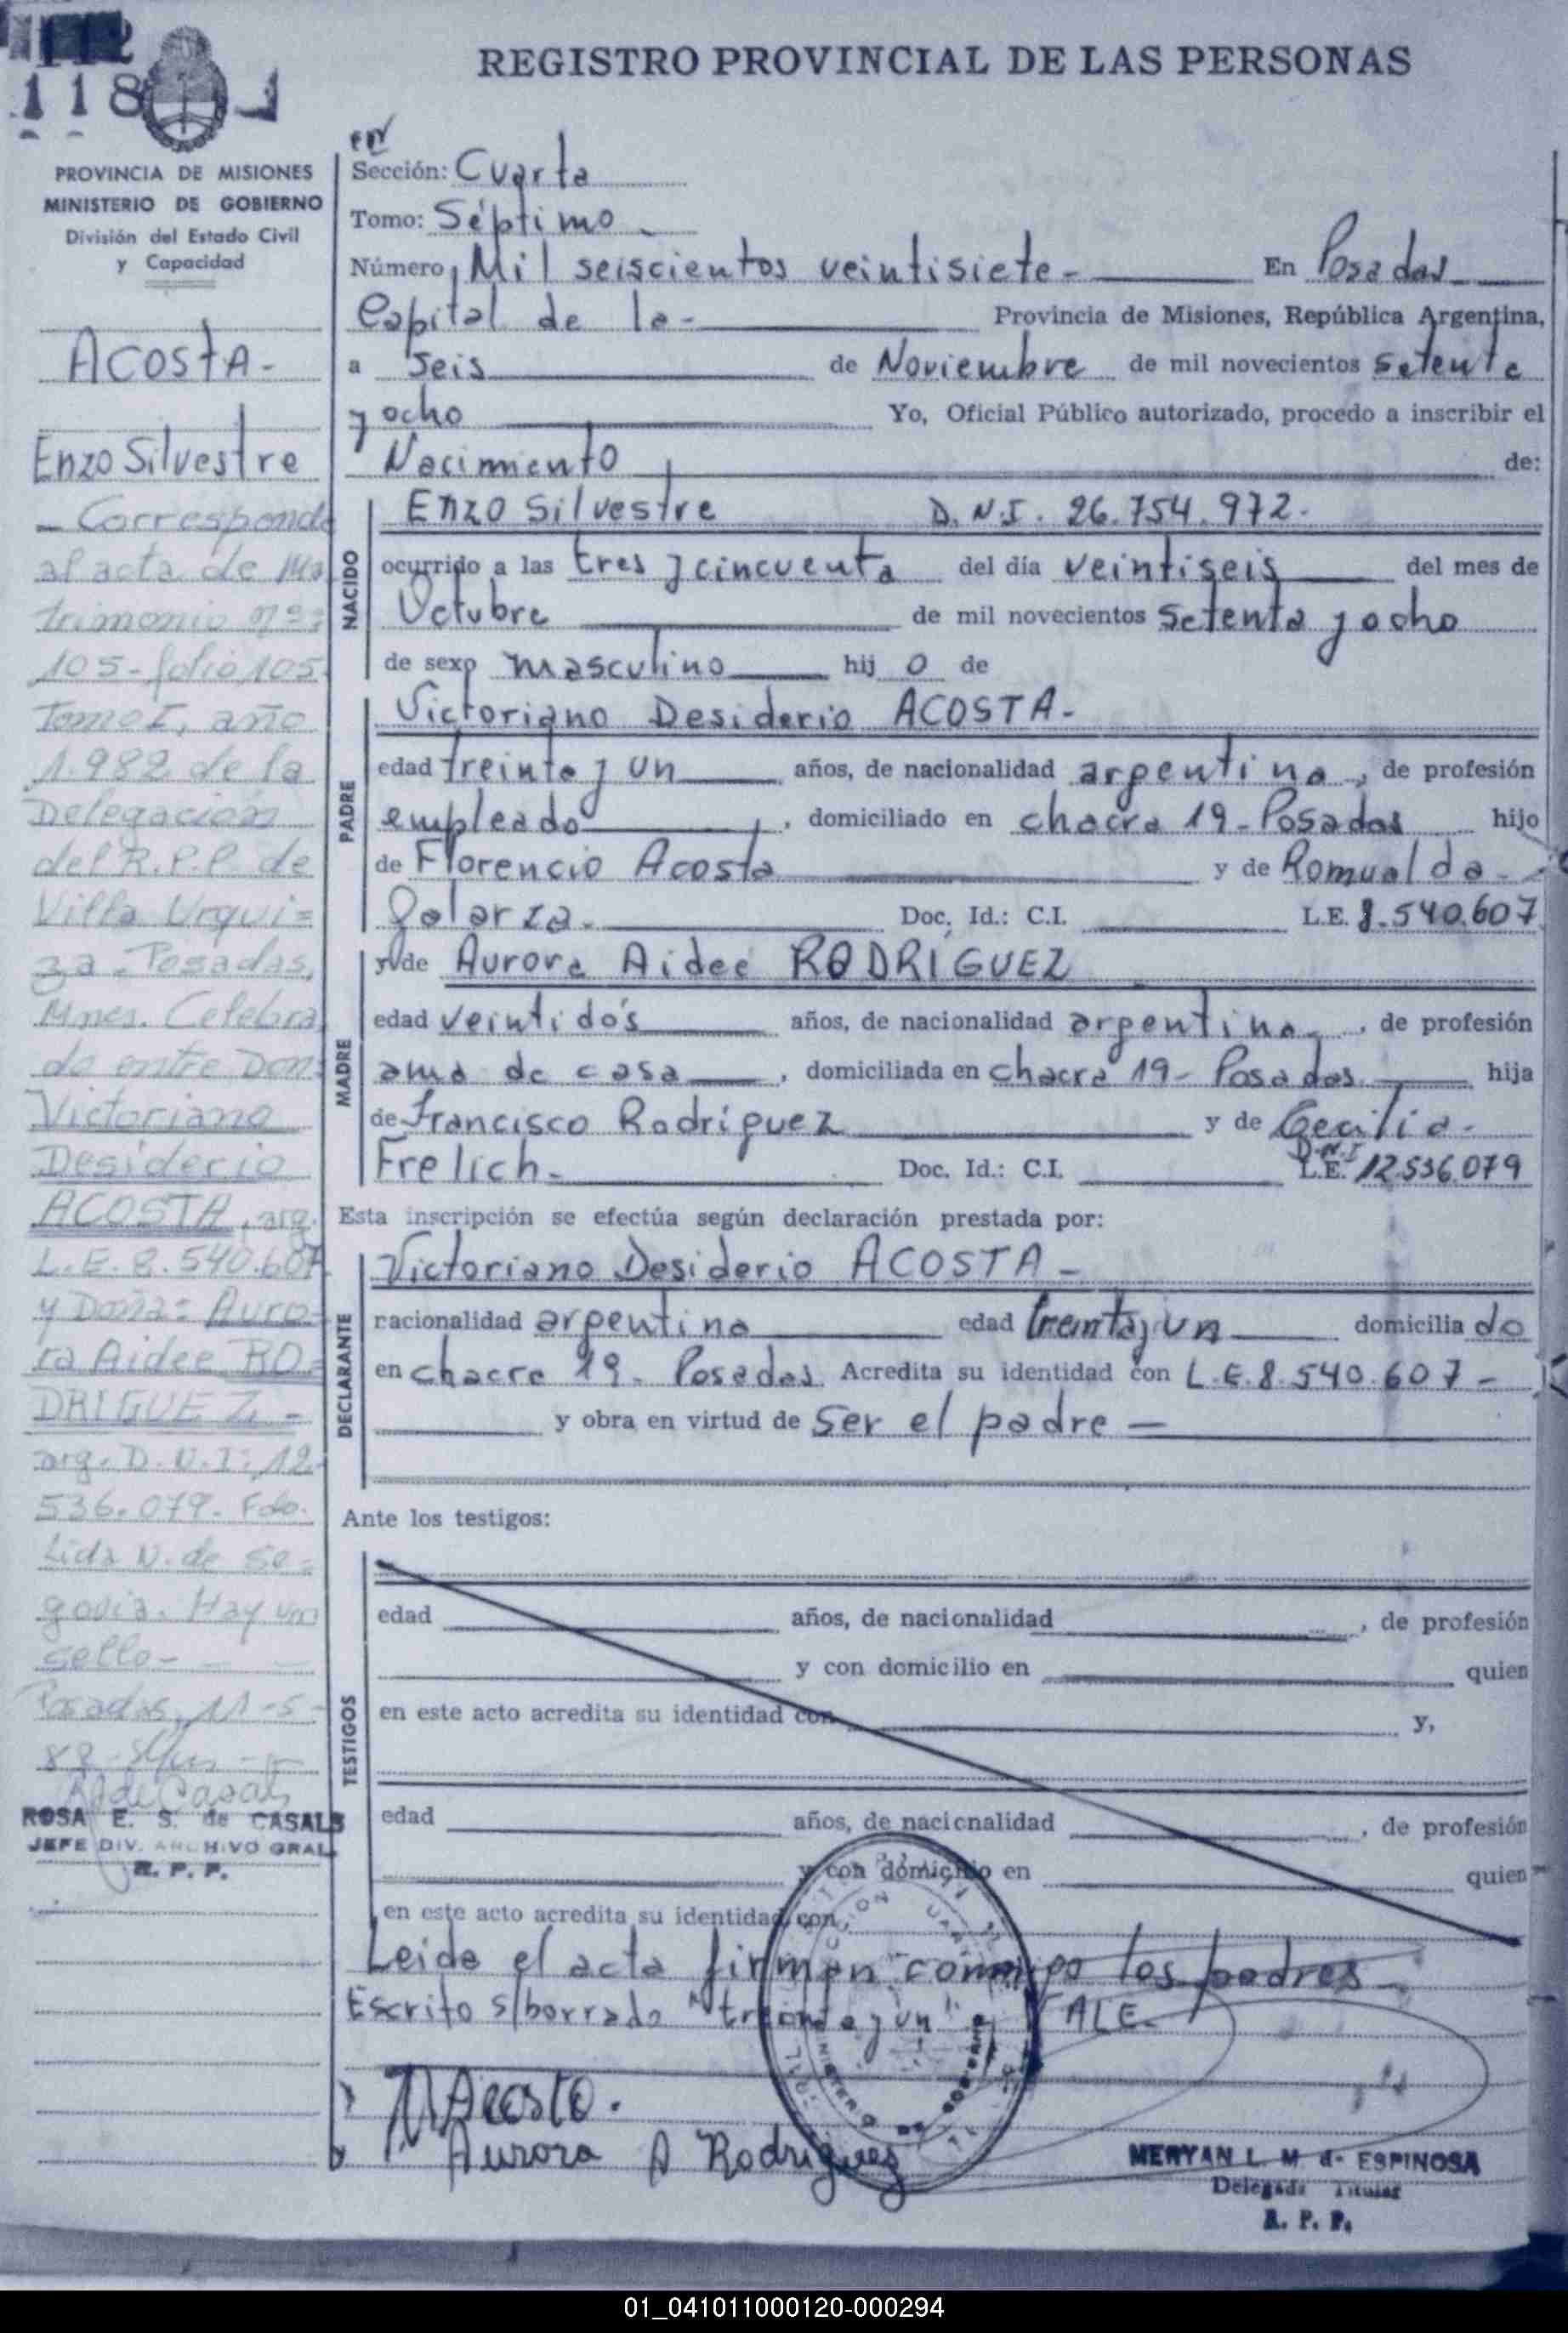 118
REGISTRO PROVINCIAL DE LAS PERSONAS
PROVINCIA DE MISIONES
MINISTERIO DE GOBIERNO
División del Estado Civil
y Capacidad
ACOSTA-
Enzo Silvestre
- Corresponde
al acta de Ma
trimonio Nº:
105-folio 105
Tomo I, año
1.982 de la
Delegación
del R.P.P. de
Villa Urqui=
za - Posadas,
Mnes. Celebra
do entre Don:
Victoriano
Desiderio
ACOSTA, arg.
L.E. 8.540.607
y Doña: Auro-
ra Aidee RO=
DRIGUEZ -
arg. D.N.I: 12.
536.079. Fdo.
Lida N. de Se=
govia. Hay un
sello-
Posadas, 11-5-
ROSA E. S. de CASALS
JEFE DIV. ARCHIVO GRAL.
R. P. P.
Sección: Cuarta
Tomo: Séptimo
Número, Mil seiscientos veintisiete- En Posadas
Capital de la- Provincia de Misiones, República Argentina,
a Seis de Noviembre de mil novecientos setenta
y ocho Yo, Oficial Público autorizado, procedo a inscribir el
Nacimiento de:
NACIDO
Enzo Silvestre D.N.I. 26.754.972.
ocurrido a las tres y cincuenta del día veintiseis del mes de
Octubre de mil novecientos setenta y ocho
de sexo masculino hij o de
PADRE
Victoriano Desiderio ACOSTA-
edad treinta y un años, de nacionalidad argentina, de profesión
empleado, domiciliado en chacra 19-Posadas hijo
de Florencio Acosta y de Romualda
Galarza. Doc. Id.: C.I. L.E. 8.540.607
MADRE
y de Aurora Aidee RODRÍGUEZ
edad veintidós años, de nacionalidad argentina, de profesión
ama de casa, domiciliada en chacra 19- Posadas hija
de Francisco Rodríguez y de Cecilia-
Frelich- Doc. Id.: C.I. L.E. D.N.I 12.536.079
Esta inscripción se efectúa según declaración prestada por:
DECLARANTE
Victoriano Desiderio ACOSTA-
nacionalidad argentina edad treinta y un domicilia do
en chacra 19- Posadas Acredita su identidad con L.E. 8.540.607-
y obra en virtud de ser el padre-
Ante los testigos:
TESTIGOS
edad años, de nacionalidad, de profesión
y con domicilio en quien
en este acto acredita su identidad con y,
edad años, de nacionalidad, de profesión
y con domicilio en quien
en este acto acredita su identidad con
Leida el acta firman conmigo los padres
Escrito s/borrado "treinta y un" VALE-
Acosta.
Aurora A Rodríguez
MERYAN L. M. de ESPINOSA
Delegada Titular
R. P. P.
01_041011000120-000294